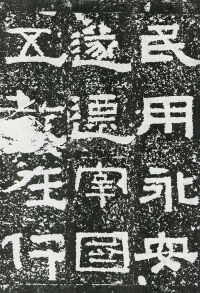 民用永安
遂遷宰國
五教在仁